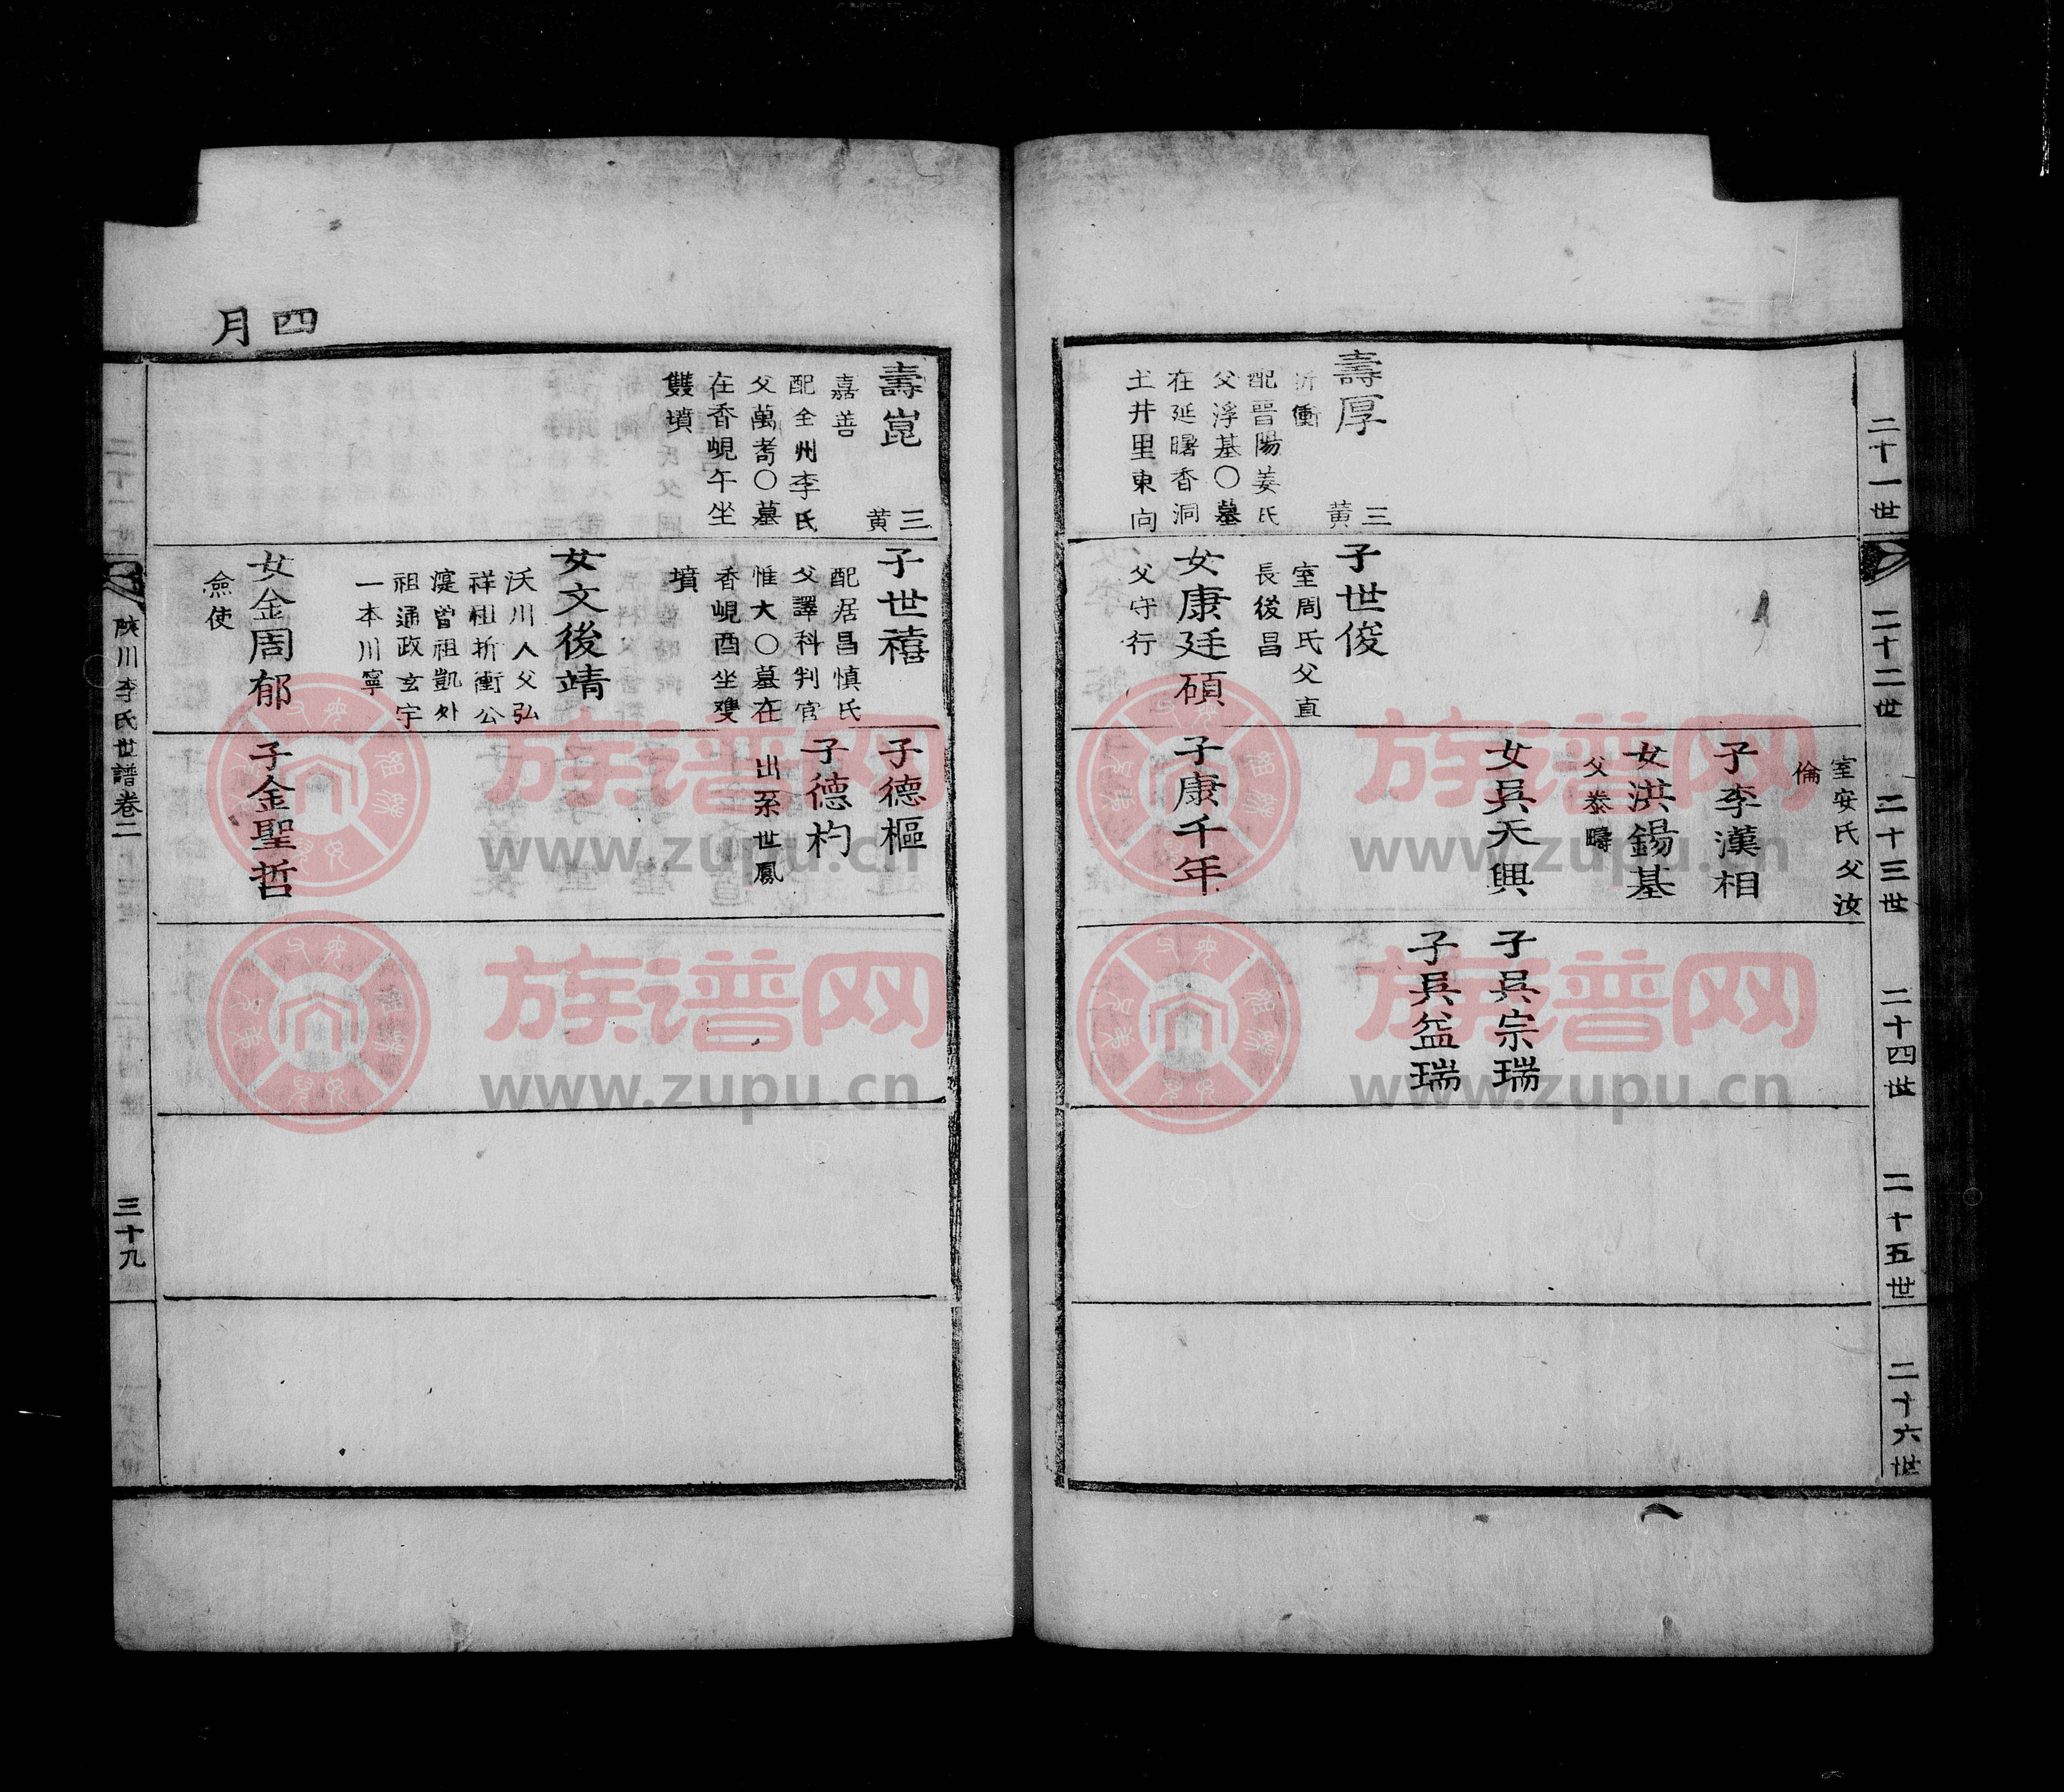 二十一世
二十二世
二十三世
二十四世
二十五世
二十六世
壽厚
三黄
折衝
配晉陽姜氏
父浮基○墓
在延曙香洞
土井里東向
子世俊
室周氏父直
長後昌
女康廷碩
父守行
室安氏父汝
倫
子李漢相
女洪錫基
父泰疇
女吳天興
子康千年
子吳宗瑞
子吳益瑞
四月
壽崑
三黄
嘉善
配全州李氏
父萬耈○墓
在香峴午坐
雙墳
子世禧
配居昌慎氏
父譯科判官
惟大○墓在
香峴酉坐雙
墳
女文後靖
沃川人父弘
祥祖折衝公
濩曾祖凱外
祖通政玄宇
一本川寧
女金周郁
僉使
子德樞
子德杓
出系世鳳
子金聖哲
陜川李氏世譜卷二
三十九
族谱网
www.zupu.cn
族谱网
www.zupu.cn
族谱网
www.zupu.cn
族谱网
www.zupu.cn